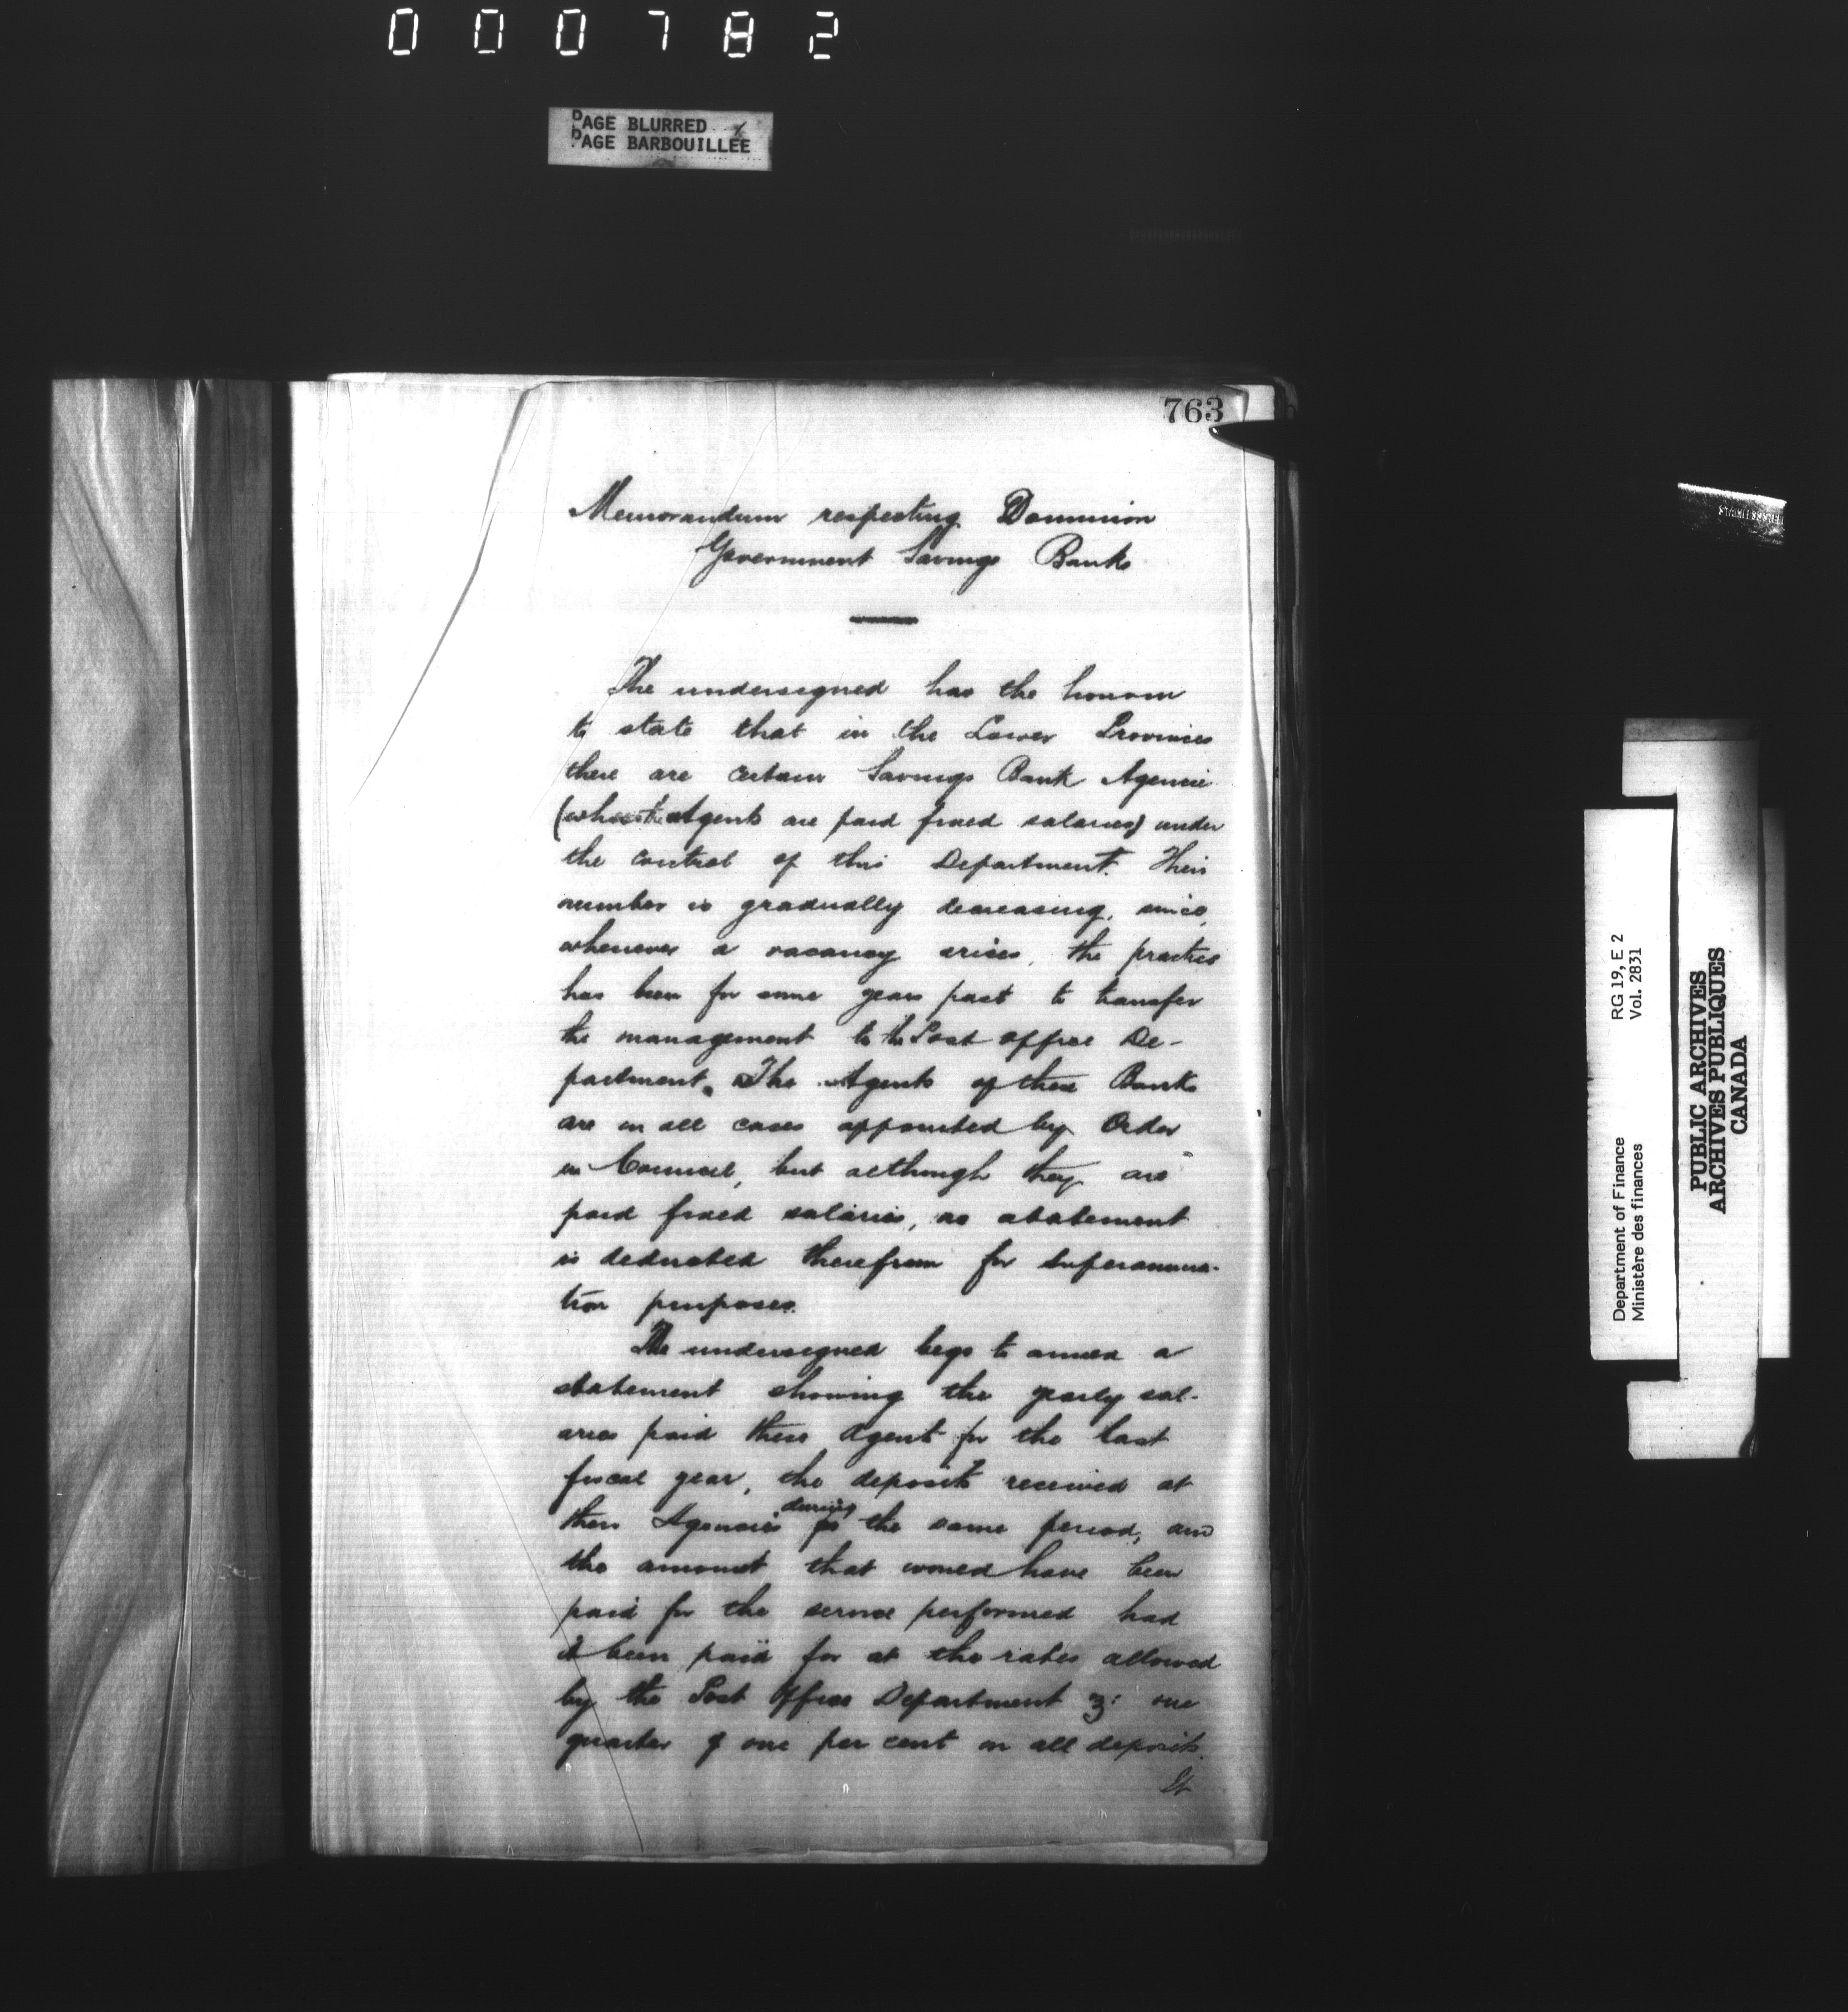 000782
PAGE BLURRED
PAGE BARBOUILLÉE
763
Memorandum respecting Dominion
Government Savings Banks
The undersigned has the honour
to state that in the Lower Provinces
there are certain Savings Bank Agencies
(where the Agents are paid fixed salaries) under
the control of this Department. Their
number is gradually decreasing, since,
whenever a vacancy arises, the practice
has been for some years past to transfer
the management to the Post office De-
partment. The Agents of these Banks
are in all cases appointed by Order
in Council, but although they are
paid fixed salaries, no abatement
is deducted therefrom for Superannua-
tion purposes.
The undersigned begs to annex a
statement showing the yearly sal-
aries paid these Agents for the last
fiscal year, the deposits received at
during
these Agencies for the same period, and
the amount that would have been
paid for the service performed had
it been paid for at the rates allowed
by the Post Office Department viz: one
quarter of one per cent on all deposits.
It
RG 19, E 2
Vol. 2831
Department of Finance
Ministère des finances
PUBLIC ARCHIVES
ARCHIVES PUBLIQUES
CANADA